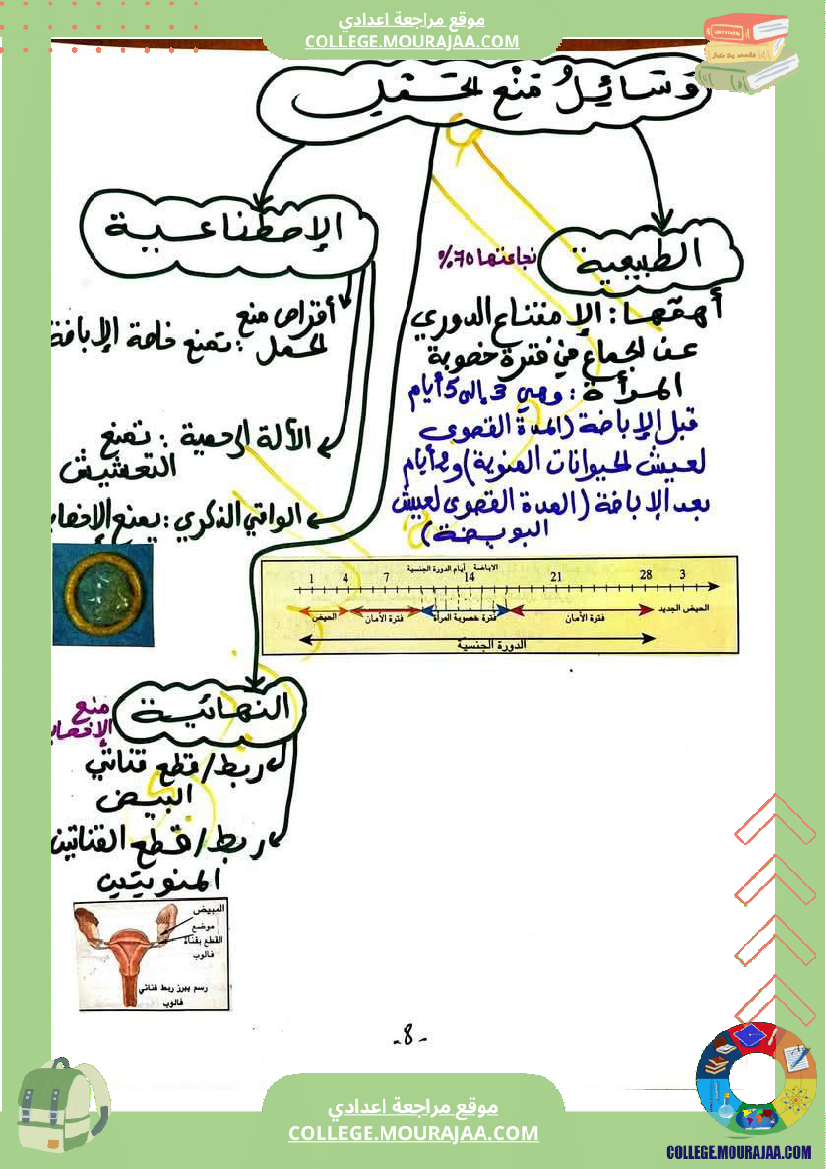 موقع مراجعة اعدادي
COLLEGE.MOURAJAA.COM
وَسَائِلُ مَنْعِ الحَمْلِ
الطبيعية
نجاعتها 70%
أهمّها: الإمتناع الدوري
عن الجماع في فترة خصوبة
المرأة: وهي 3 إلى 5 أيام
قبل الإباضة (المدة القصوى
لعيش الحيوانات المنوية) و 2 أيام
بعد الإباضة (المدة القصوى لعيش
البويضة)
الإصطناعية
أقراص منع
الحمل: تمنع خاصة الإباضة
الألة الرحمية: تمنع
التعشيش
الواقي الذكري: يمنع الإخصا
الاباضة أيام الدورة الجنسية
1 4 7 14 21 28 3
الحيض فترة الأمان فترة خصوبة المرأة فترة الأمان الحيض الجديد
الدورة الجنسية
النهائية
منع
الإخصا
ربط/قطع قناتي
البيض
ربط/قطع القناتين
المنويتين
المبيض
موضع
القطع بقناة
فالوب
رسم يبرز ربط قناتي
فالوب
-8-
موقع مراجعة اعدادي
COLLEGE.MOURAJAA.COM
COLLEGE.MOURAJAA.COM